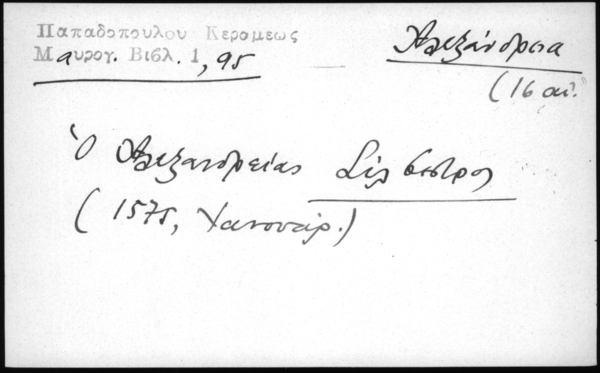 Παπαδοπουλου Κεραμεως
Μαυρογ. Βιβλ. 1, 95
Ἀλεξάνδρεια
(16 αἰ.
Ὁ Ἀλεξανδρείας Σίλβεστρος
(1575, Ἰανουάρ.)